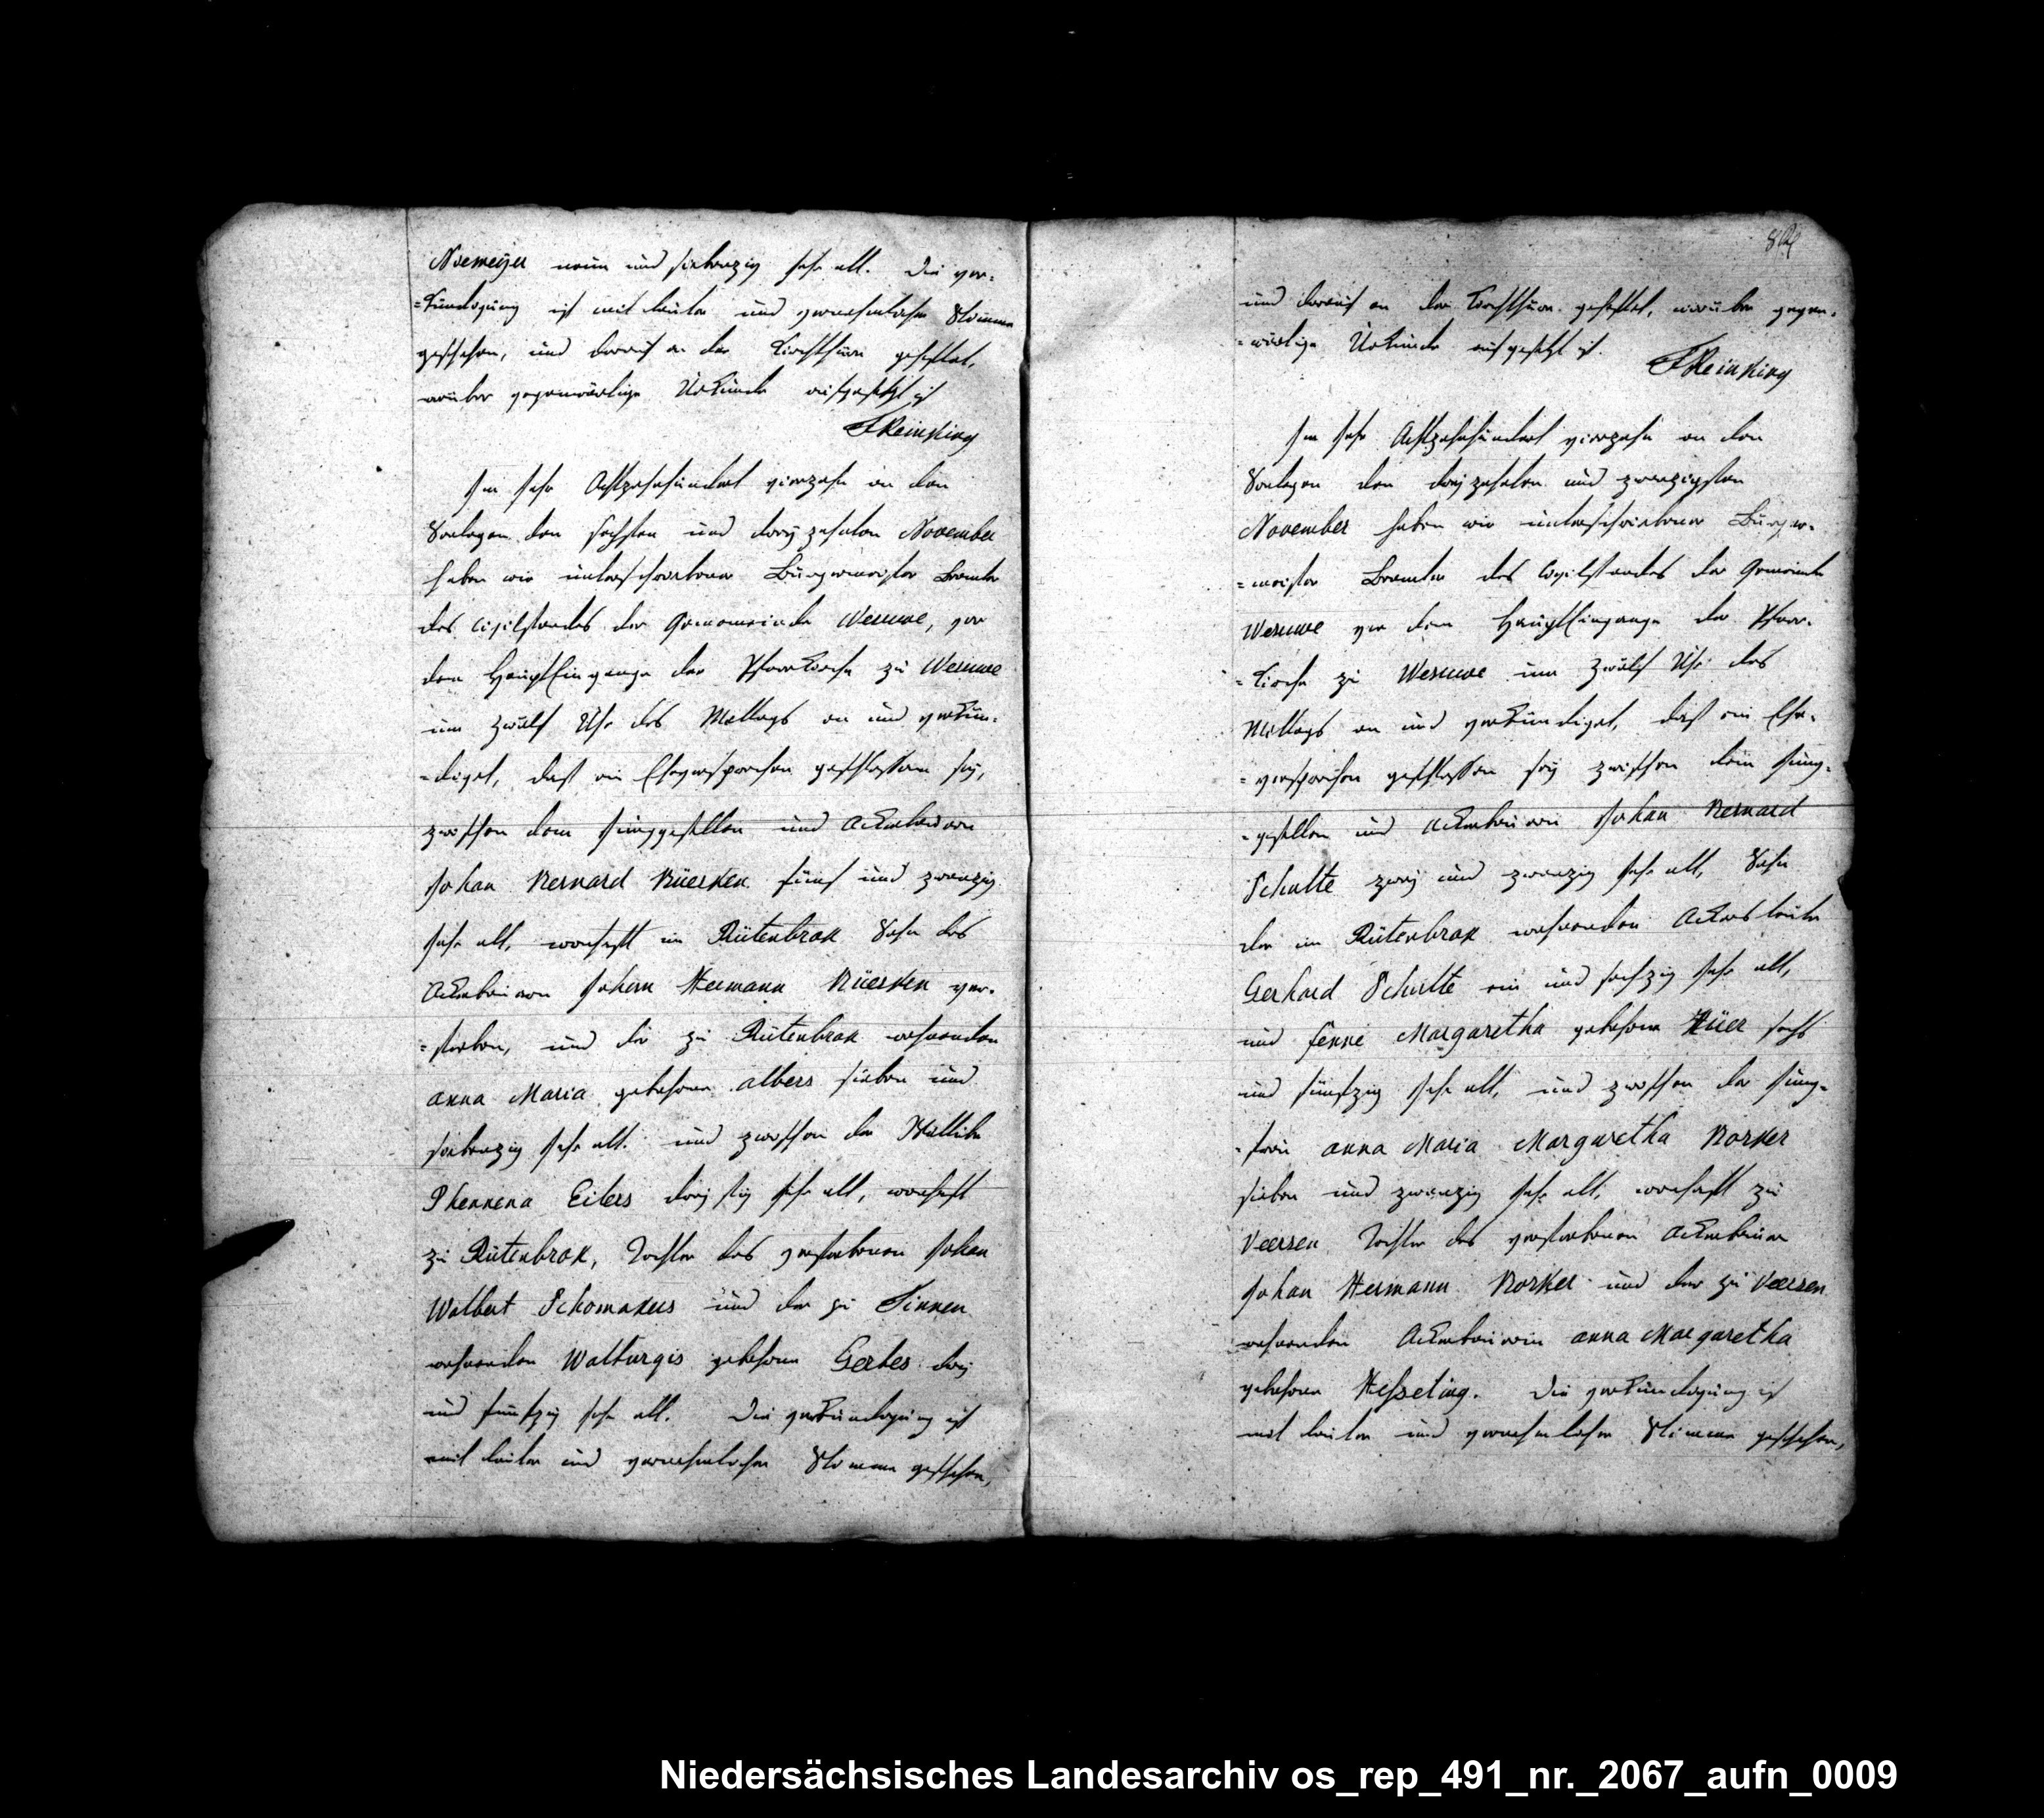 Niemeyer neun und siebenzig Jahr alt. Die ver-
=kündigung ist mit lauter und vernehmlicher Stimme
geschehen, und darauf an der Kirchthüre geheftet,
worüber gegenwärtige Urkunde aufgesetzt ist
FReinking
Im Jahr Achtzehnhundert vierzehn an den
Sontagen den sechsten und dreyzehnten November
haben wir unterschriebener Bürgermeister Beamter
des Civilstandes der Gemeinde Wesuwe, vor
dem Haupteingange der Pfarrkirche zu Wesuwe
um zwölf Uhr des Mittags an und verkün-
=diget, daß ein Eheversprechen geschlossen sey,
zwischen dem Junggesellen und Ackerbauern
Johan Bernard Büerken fünf und zwanzig
Jahr alt, wonhaft im Rütenbrok Sohn des
Ackerbauern Johan Hermann Büerken ver-
=storben, und die zu Rütenbrok wohnenden
Anna Maria gebohrene Albers sieben und
siebenzig Jahr alt. und zwischen der Wittibe
Thennena Eilers dreyßig Jahr alt, wonhaft
zu Rütenbrok, Tochter des verstorbenen Johan
Wolbert Schomakers und der zu Tinnen
wohnenden Walburgis gebohrene Gerbes drey
und fünfzig Jahr alt. Die verkündigung ist
mit lauter und vernehmlicher Stimme geschehen,
und darauf an der Kirchthüre geheftet, worüber gegen-
=wärtige Urkunde aufgesetzt ist.
FReinking
Im Jahr Achtzehnhundert vierzehn an den
Sontagen den dreyzehnten und zwanzigsten
November haben wir unterschriebener Bürger-
=meister Beamter des Civilstandes der Gemeinde
Wesuwe vor dem Haupteingange der Pfarr-
=kirche zu Wesuwe um zwölf Uhr des
Mittags an und verkündiget, daß ein Ehe-
=versprechen geschlossen sey zwischen dem Jung-
=gesellen und Ackerbauern Johan Bernard
Schulte zwey und zwanzig Jahr alt, Sohn
der im Rütenbrok wohnenden Ackersleute
Gerhard Schulte ein und sechzig Jahr alt,
und Fenne Margaretha gebohrene Hüer sechs
und fünfzig Jahr alt, und zwischen der Jung-
=frau Anna Maria Margaretha Borker
sieben und zwanzig Jahr alt, wonhaft zu
Veersen Tochter des verstorbenen Ackerbauer
Johan Hermann Borker und der zu Veersen
wohnenden Ackerbäuerin Anna Margaretha
gebohrene Heßeling. Die verkündigung ist
mit lauter und vernehmlicher Stimme geschehen,
Niedersächsisches Landesarchiv os_rep_491_nr._2067_aufn_0009